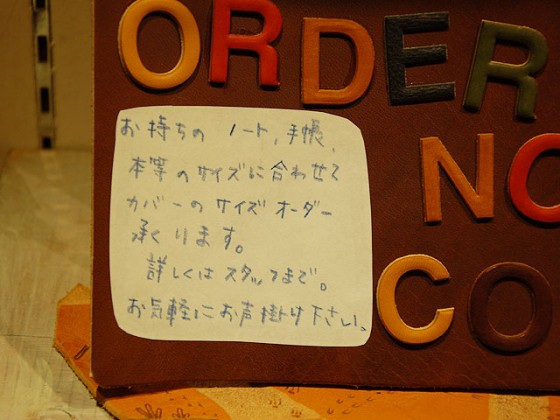 ORDER
NO
CO
お持ちの ノート,手帳,
本等のサイズに合わせて
カバーのサイズオーダー
承くります。
詳しくはスタッフまで。
お気軽にお声掛け下さい。